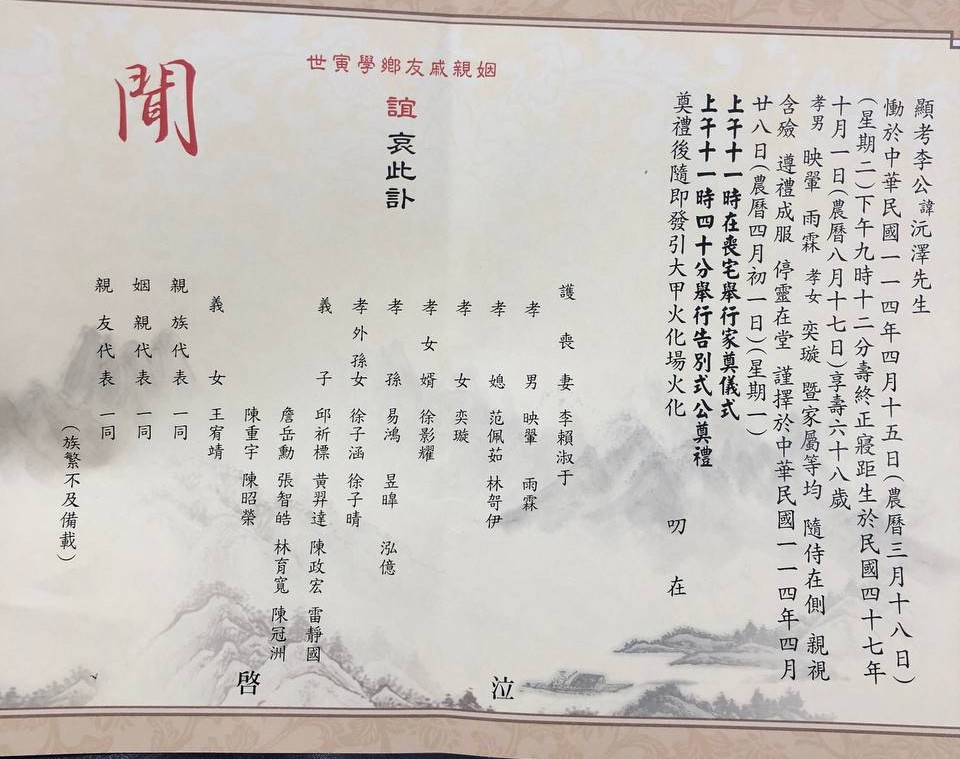 顯考李公諱沅澤先生
慟於中華民國一一四年四月十五日(農曆三月十八日)
(星期二)下午九時十二分壽終正寢距生於民國四十七年
十月一日(農曆八月十七日)享壽六十八歲
孝男 映翬 雨霖 孝女 奕璇 暨家屬等均 隨侍在側 親視
含殮 遵禮成服 停靈在堂 謹擇於中華民國一一四年四月
廿八日(農曆四月初一日)(星期一)
上午十一時在喪宅舉行家奠儀式
上午十一時四十分舉行告別式公奠禮
奠禮後隨即發引大甲火化場火化
叨在
世寅學鄉友戚親姻
誼哀此訃
聞
護喪妻 李賴淑于
孝男 映翬 雨霖
孝媳 范佩茹 林哿伊
孝女 奕璇
孝女婿 徐影耀
孝孫 易鴻 昱暐 泓億
孝外孫女 徐子涵 徐子晴
義子 邱祈標 黃羿達 陳政宏 雷靜國
詹岳勳 張智皓 林育寬 陳冠洲
陳重宇 陳昭榮
義女 王宥靖
親族代表 一同
姻親代表 一同
親友代表 一同
(族繁不及備載)
泣
啓